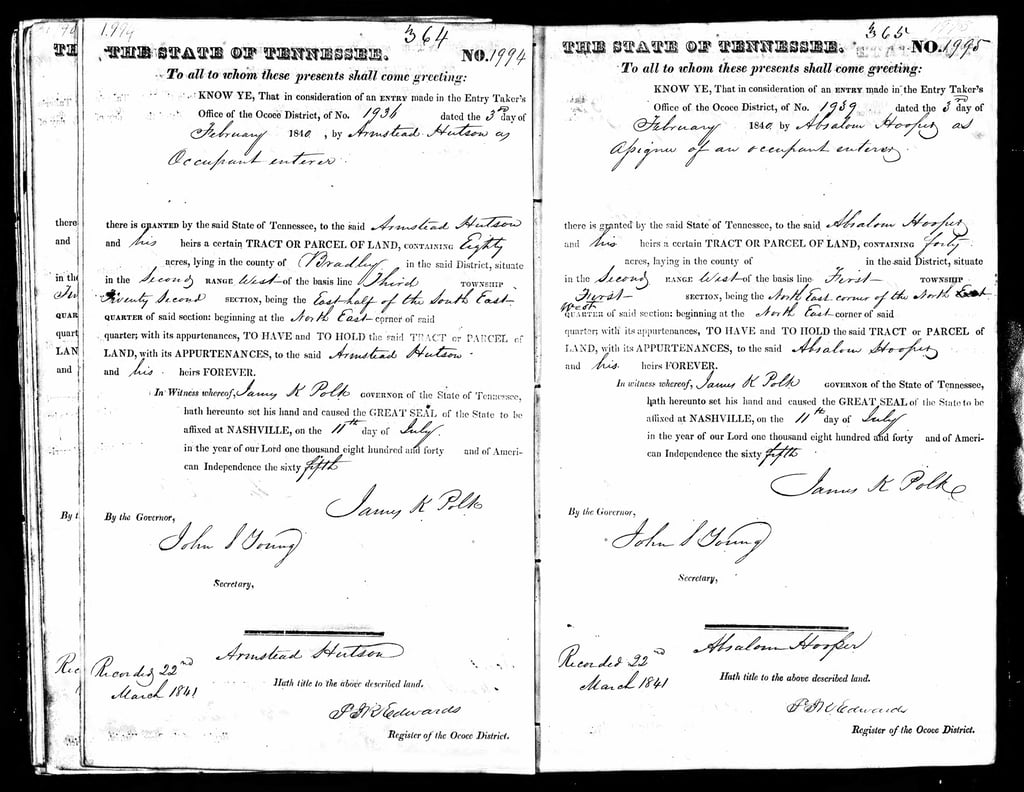 1994
364
THE STATE OF TENNESSEE. NO. 1994
To all to whom these presents shall come greeting:
KNOW YE, That in consideration of an ENTRY made in the Entry Taker's
Office of the Ocoee District, of No. 1936 dated the 3rd day of
February 1840, by Armstead Hutson as
Occupant enterer
there is GRANTED by the said State of Tennessee, to the said Armstead Hutson
and his heirs a certain TRACT OR PARCEL OF LAND, CONTAINING Eighty
acres, lying in the county of Bradley in the said District, situate
in the Second RANGE West of the basis line Third TOWNSHIP
Twenty Second SECTION, being the East half of the South East
QUARTER of said section: beginning at the North East corner of said
quarter; with its appurtenances, TO HAVE and TO HOLD the said TRACT or PARCEL of
LAND, with its APPURTENANCES, to the said Armstead Hutson
and his heirs FOREVER.
In Witness whereof, James K Polk GOVERNOR of the State of Tennessee,
hath hereunto set his hand and caused the GREAT SEAL of the State to be
affixed at NASHVILLE, on the 11th day of July
in the year of our Lord one thousand eight hundred and forty and of Ameri-
can Independence the sixty fifth
James K Polk
By the Governor,
John S Young
Secretary,
Armstead Hutson
Recorded 22nd
March 1841
Hath title to the above described land.
P J R Edwards
Register of the Ocoee District.
365
THE STATE OF TENNESSEE. NO. 1995
To all to whom these presents shall come greeting:
KNOW YE, That in consideration of an ENTRY made in the Entry Taker's
Office of the Ococe District, of No. 1939 dated the 3rd day of
February 1840 by Absalom Hooper as
Assignee of an occupant enterer
there is granted by the said State of Tennessee, to the said Absalom Hooper
and his heirs a certain TRACT OR PARCEL OF LAND, CONTAINING forty
acres, laying in the county of in the said District, situate
in the Second RANGE West of the basis line First TOWNSHIP
First SECTION, being the North East corner of the North
West
QUARTER of said section: beginning at the North East corner of said
quarter; with its appurtenances, TO HAVE and TO HOLD the said TRACT or PARCEL of
LAND, with its APPURTENANCES, to the said Absalom Hooper
and his heirs FOREVER.
In witness whereof, James K Polk GOVERNOR of the State of Tennessee,
hath hereunto set his hand and caused the GREAT SEAL of the State to be
affixed at NASHVILLE, on the 11th day of July
in the year of our Lord one thousand eight hundred and forty and of Ameri-
can Independence the sixty fifth
James K Polk
By the Governor,
John S Young
Secretary,
Absalom Hooper
Recorded 22nd
March 1841
Hath title to the above described land.
P J R Edwards
Register of the Ococe District.